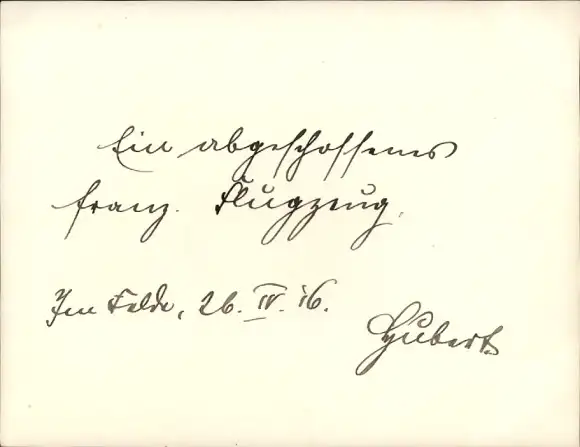 Ein abgeschossenes
franz. Flugzeug.
Im Felde, 26. IV. 16.
Hubert.